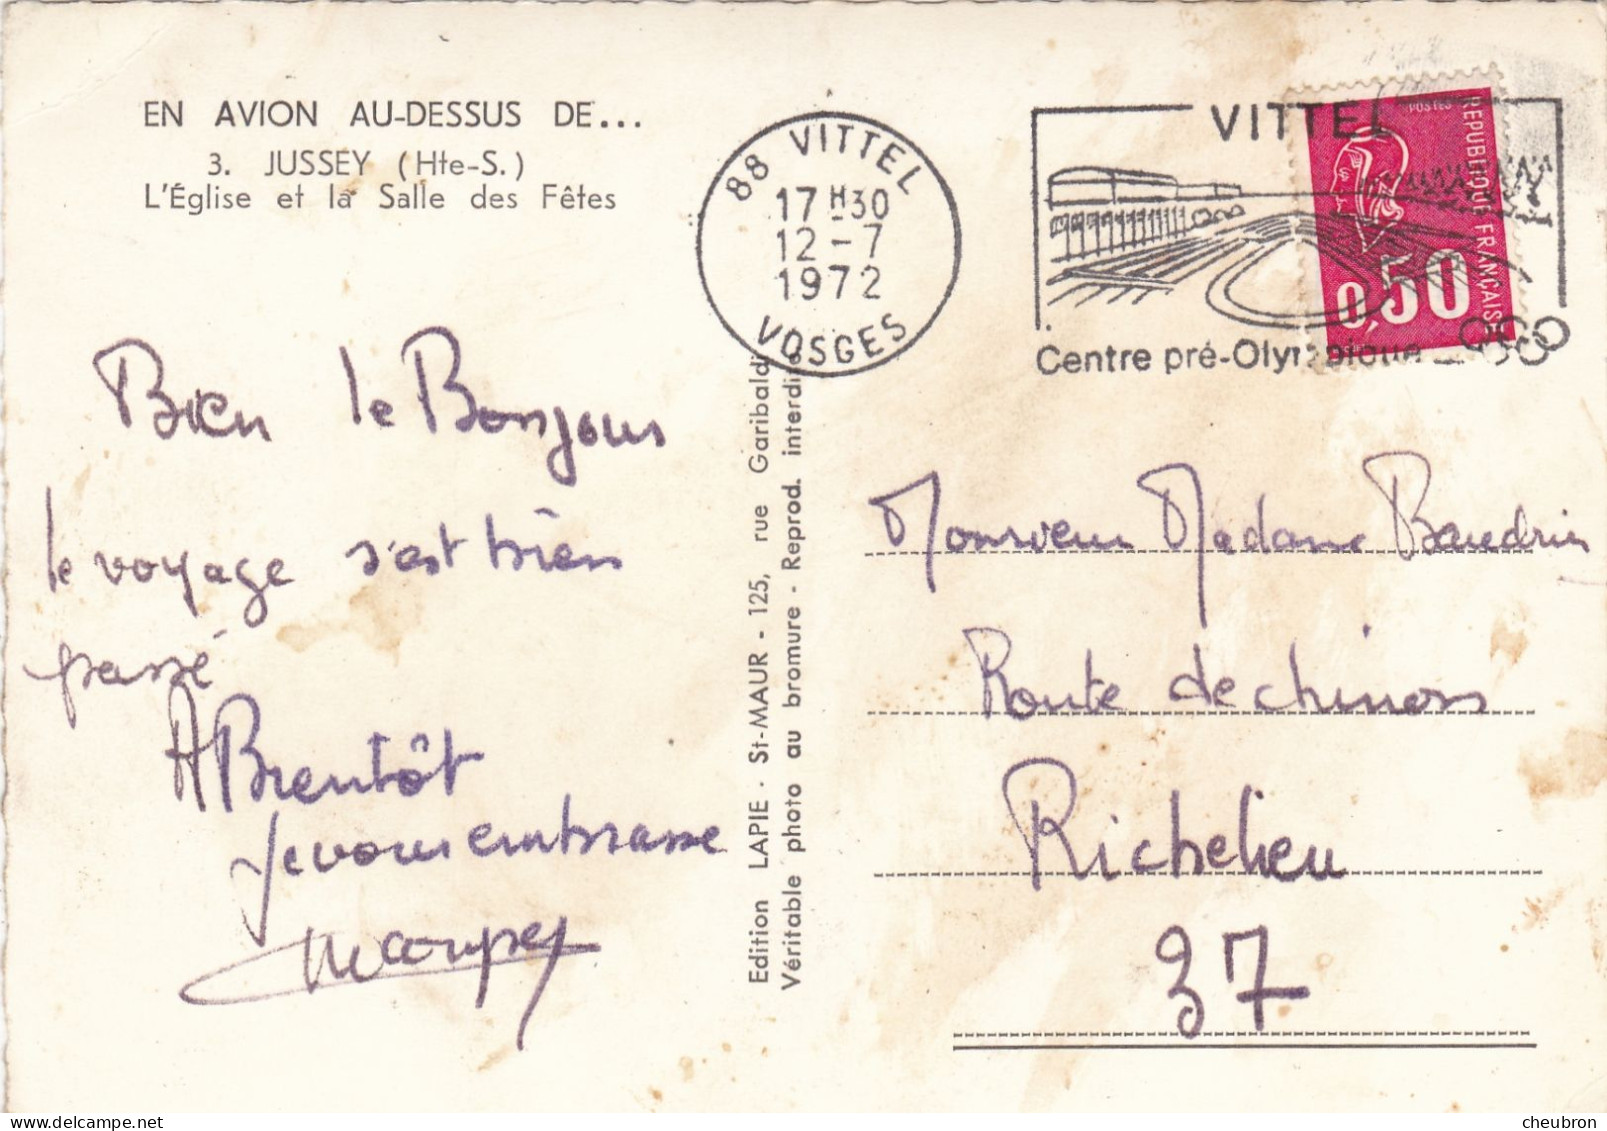 EN AVION AU-DESSUS DE...
3. JUSSEY (Hte-S.)
L'Église et la Salle des Fêtes
88 VITTEL
17 H 30
12 - 7
1972
VOSGES
VITTEL
Centre pré-Olympique
POSTES
REPUBLIQUE FRANÇAISE
0,50
Bien le Bonjour
le voyage s'est bien
passé
A Bientôt
je vous embrasse
Edition LAPIE - St-MAUR - 125, rue Garibaldi
Véritable photo au bromure - Reprod. interdite
Monsieur Madame Baudrin
Route de chinon
Richelieu
37
cheubron.com